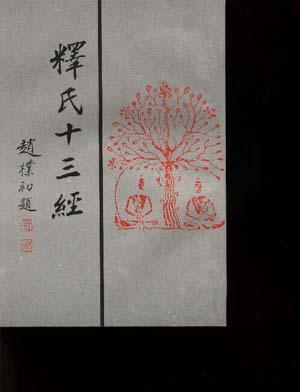 釋氏十三經
趙樸初題